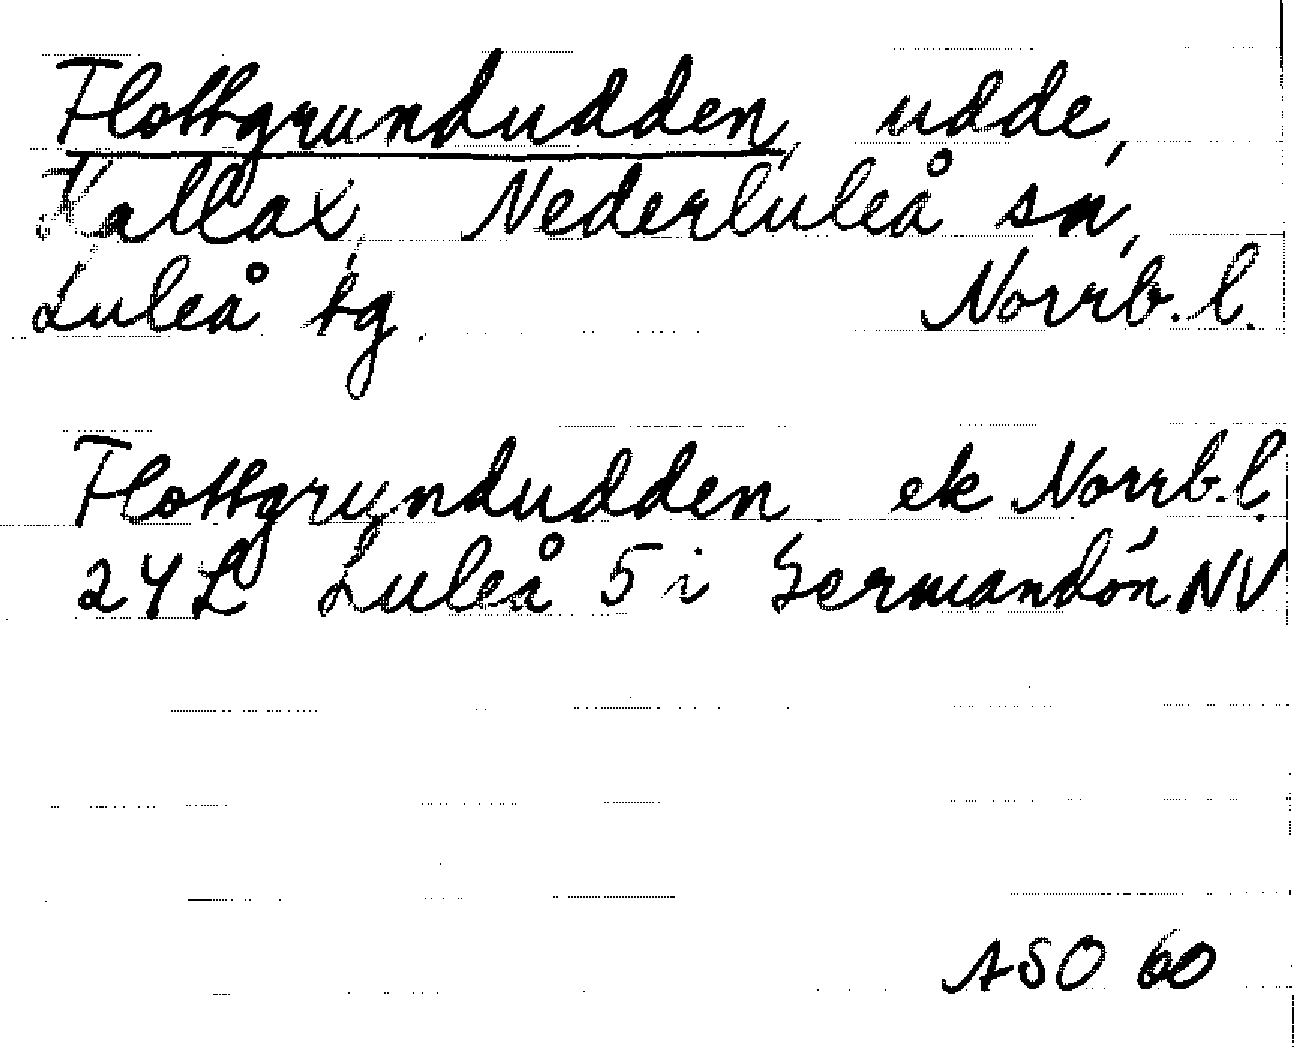 Flottgrundudden, udde,
Kallax, Nederluleå sn,
Luleå tg. Norrb. l.
Flottgrundudden ek Norrb. l.
24L Luleå 5 i Germandön NV
ASO 60